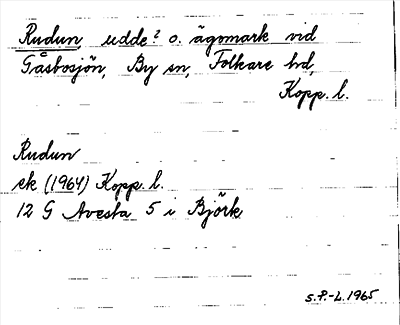 Rudun, udde? o. ägomark vid
Gåsbosjön, By sn, Folkare hd,
Kopp. l.
Rudun
ek (1964) Kopp. l.
12 G Avesta 5 i Björk
S.P.-L. 1965